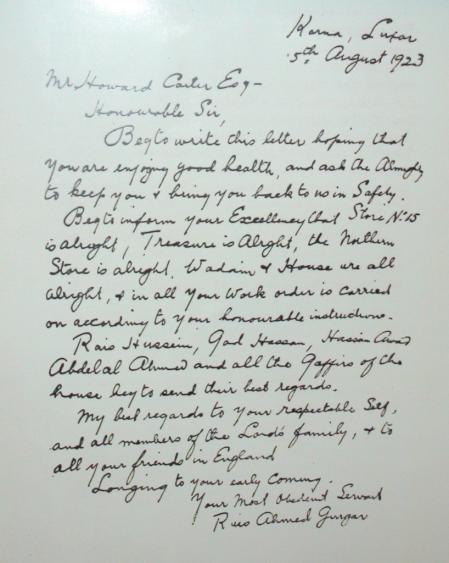 Karna, Luxor
5th August 1923
Mr. Howard Carter Esq-
Honourable Sir,
Beg to write this letter hoping that
you are enjoying good health, and ask the Almighty
to keep you & bring you back to us in Safety.
Beg to inform your Excellency that Store No 15
is alright, Treasure is Alright, the Northern
Store is alright. Wadain & House are all
alright, & in all your work order is carried
on according to your honourable instructions.
Rais Hussein, Gad Hassan, Hassan Awad
Abdelal Ahmed and all the Gaffirs of the
house beg to send their best regards.
My best regards to your respectable Self,
and all members of the Lord's family, & to
all your friends in England
Longing to your early coming.
Your Most Obedient Servant
Rais Ahmed Gurgar